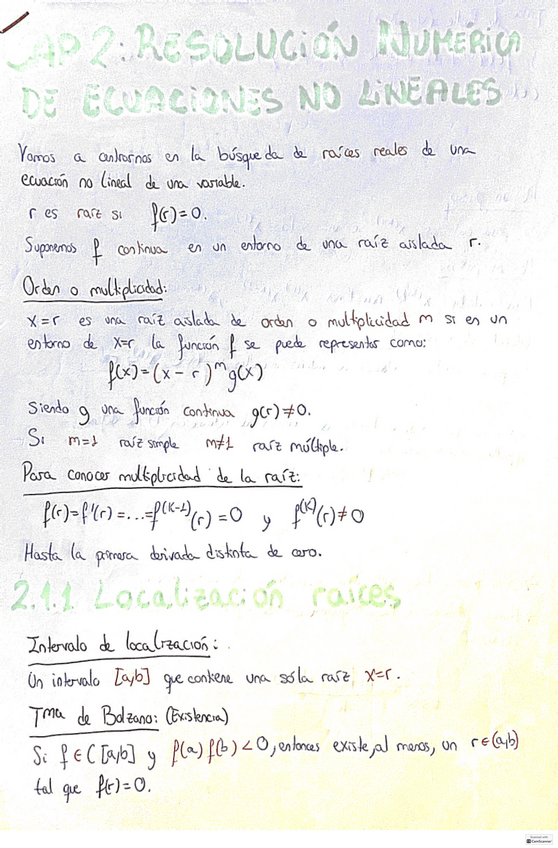 CAP 2: RESOLUCIÓN NUMÉRICA
DE ECUACIONES NO LINEALES
Vamos a centrarnos en la búsqueda de raíces reales de una
ecuación no lineal de una variable.
r es raíz si f(r)=0.
Suponemos f continua en un entorno de una raíz aislada r.
Orden o multiplicidad:
x=r es una raíz aislada de orden o multiplicidad m si en un
entorno de x=r la función f se puede representar como:
f(x)=(x-r)^m g(x)
Siendo g una función continua g(r)≠0.
Si m=1 raíz simple m≠1 raíz múltiple.
Para conocer multiplicidad de la raíz:
f(r)=f'(r)=...=f^(K-1)(r)=0 y f^(K)(r)≠0
Hasta la primera derivada distinta de cero.
2.1.1 Localización raíces
Intervalo de localización:
Un intervalo [a,b] que contiene una sóla raíz x=r.
Tma de Bolzano: (Existencia)
Si f∈C[a,b] y f(a)f(b)<0, entonces existe, al menos, un r∈(a,b)
tal que f(r)=0.
CamScanner